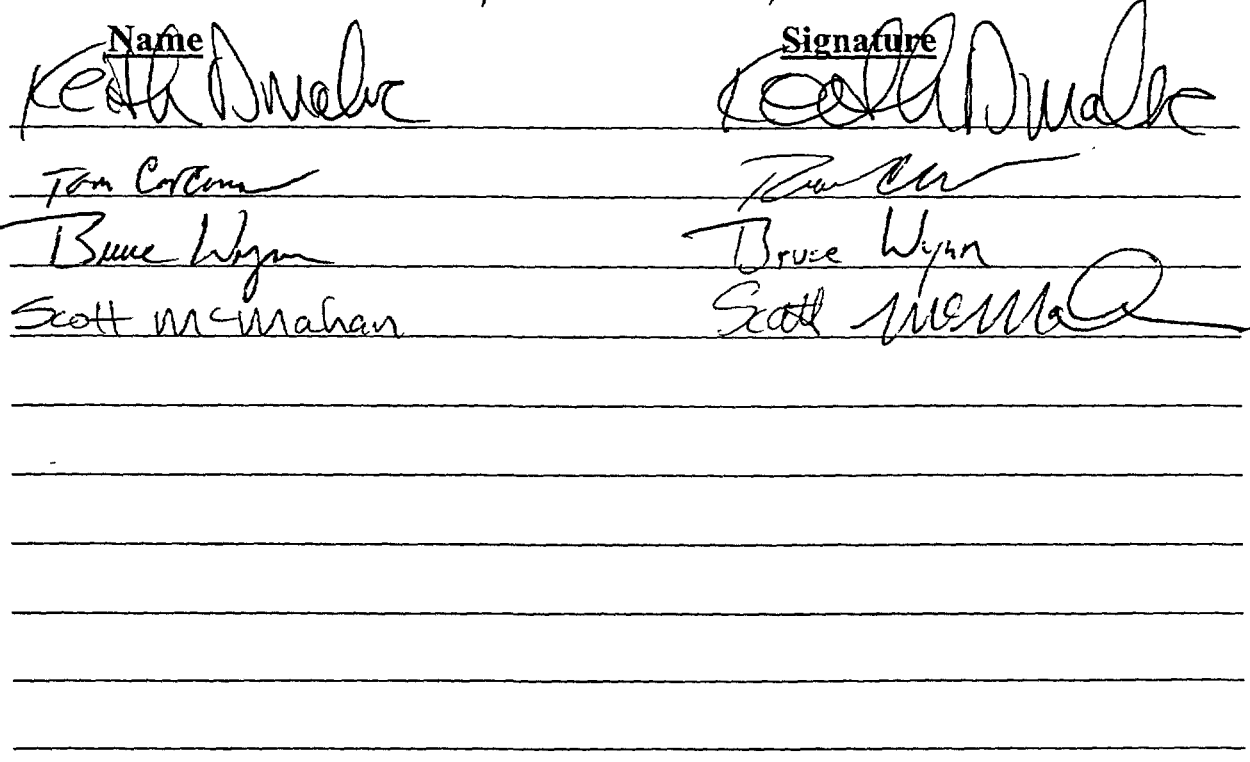 Name Signature
Keith D Malve Keith D Malve
Tom Corcoran
Bruce Wynn Bruce Wynn
Scott McMahan Scott McMa